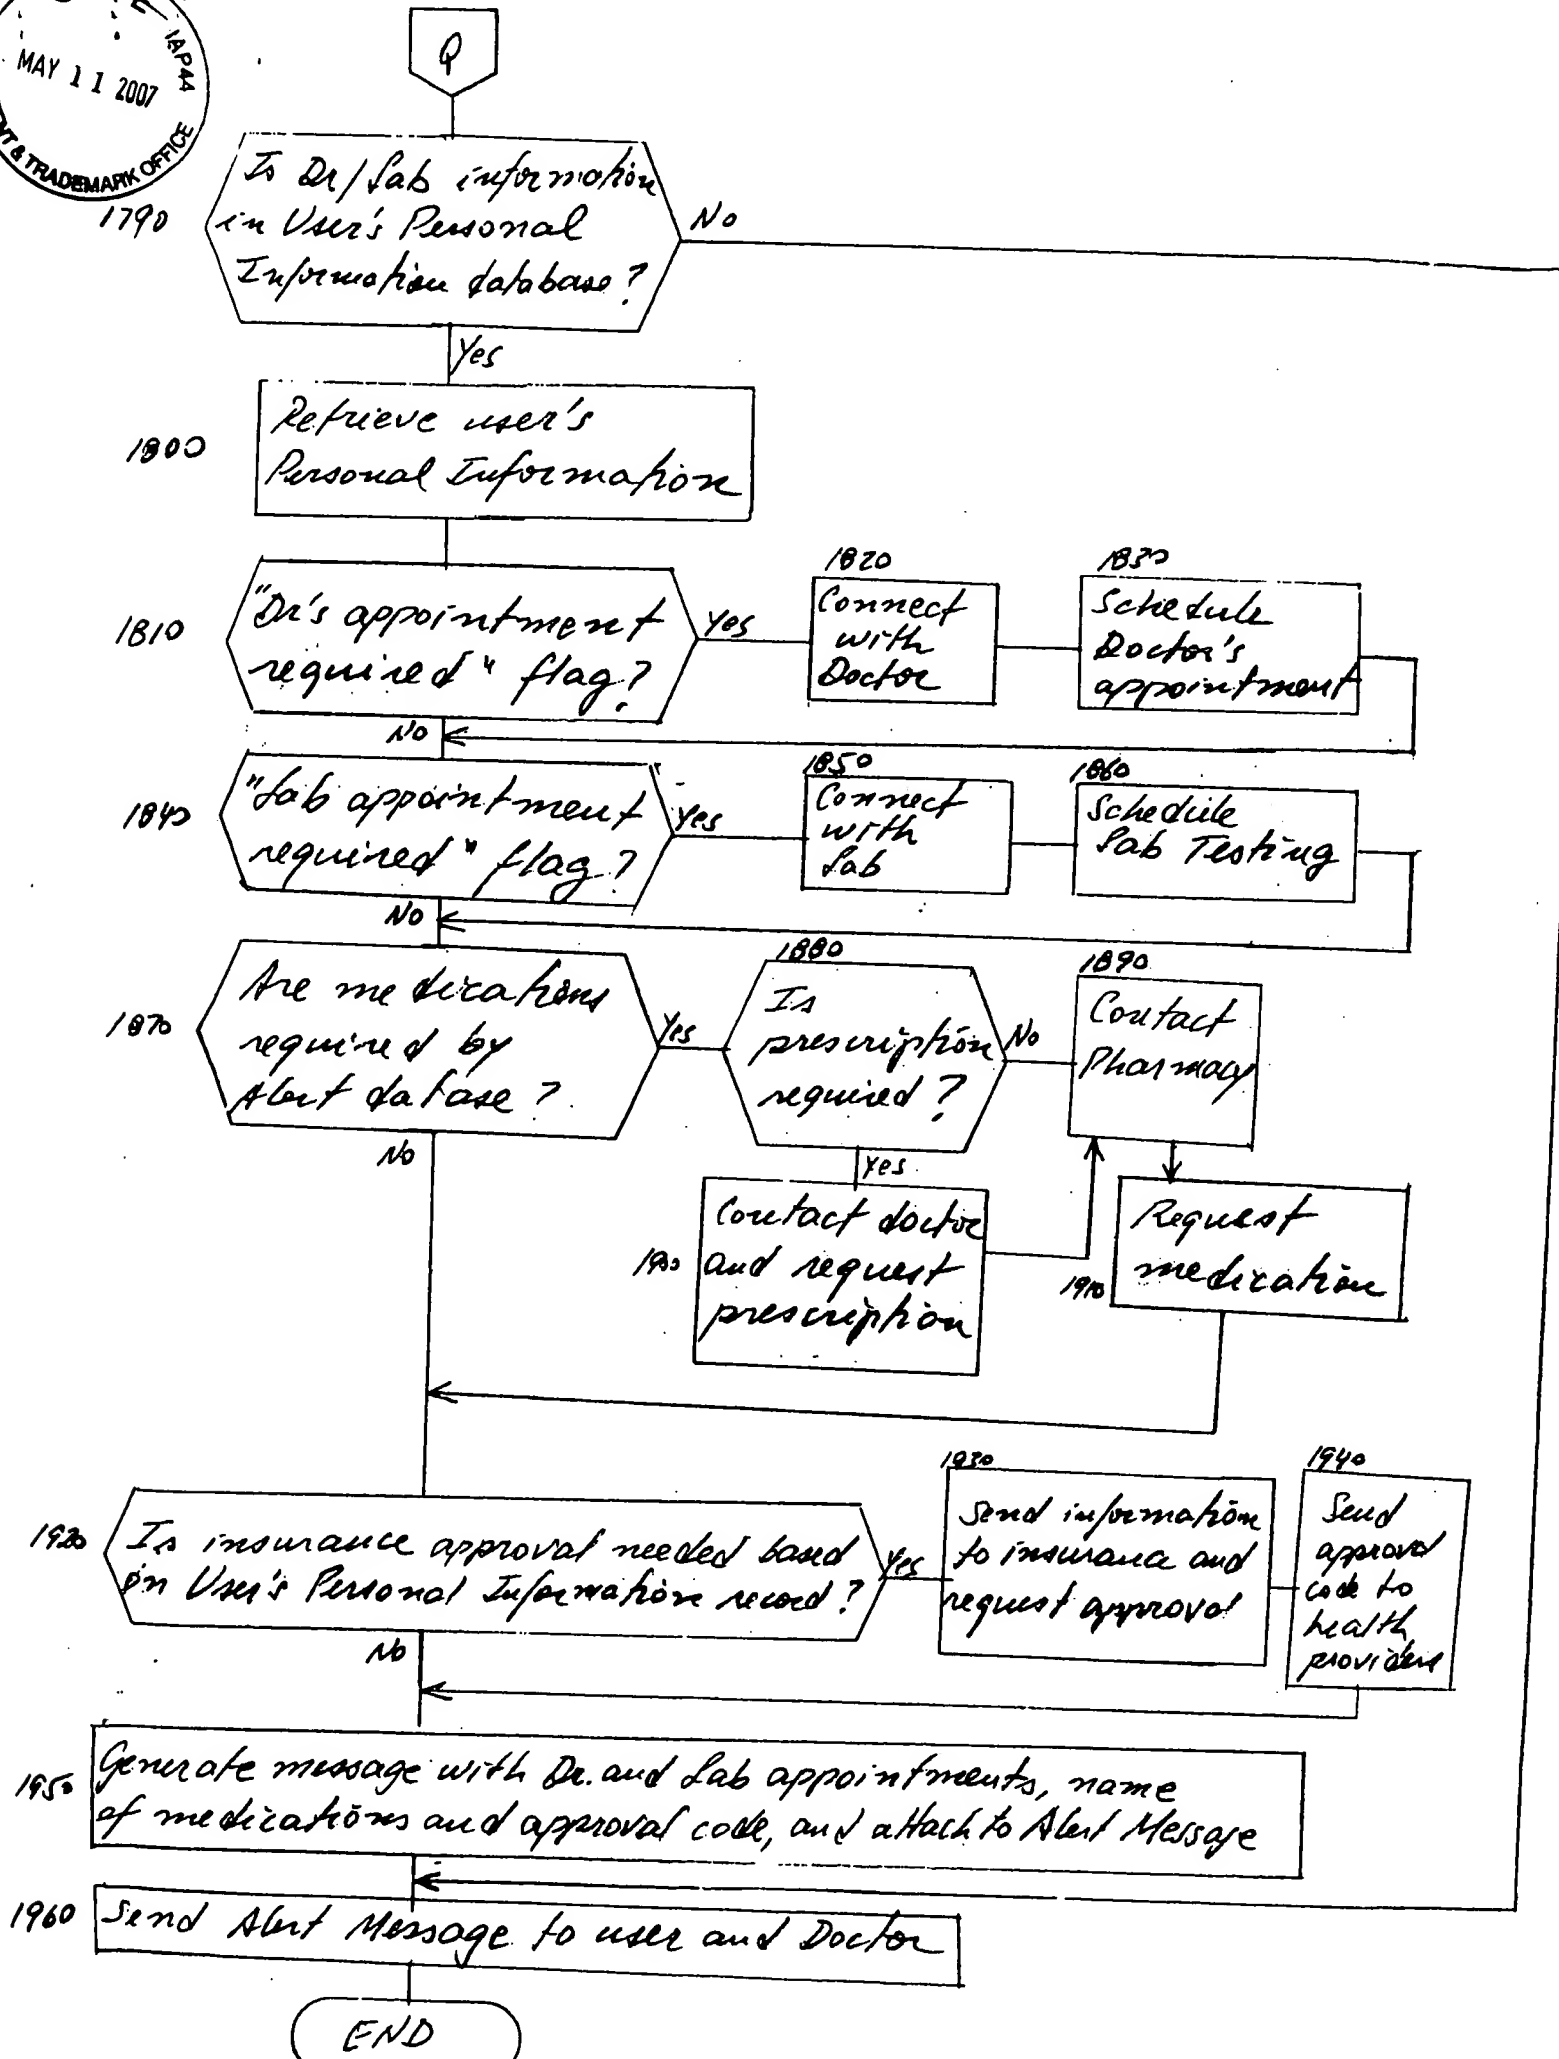 IAP44
MAY 11 2007
NT & TRADEMARK OFFICE
Q
1790
Is Dr/Lab information
in User's Personal
Information database?
No
Yes
1800
Retrieve user's
Personal Information
1810
"Dr's appointment
required" flag?
Yes
1820
Connect
with
Doctor
1830
Schedule
Doctor's
appointment
No
1840
"Lab appointment
required" flag?
Yes
1850
Connect
with
Lab
1860
Schedule
Lab Testing
No
1870
Are medications
required by
Alert datase?
Yes
1880
Is
prescription
required?
No
1890
Contact
Pharmacy
No
Yes
1900
Contact doctor
and request
prescription
1910
Request
medication
1920
Is insurance approval needed based
on User's Personal Information record?
Yes
1930
Send information
to insurance and
request approval
1940
Send
approval
code to
health
providers
No
1950
Generate message with Dr. and Lab appointments, name
of medications and approval code, and attach to Alert Message
1960
Send Alert Message to user and Doctor
END